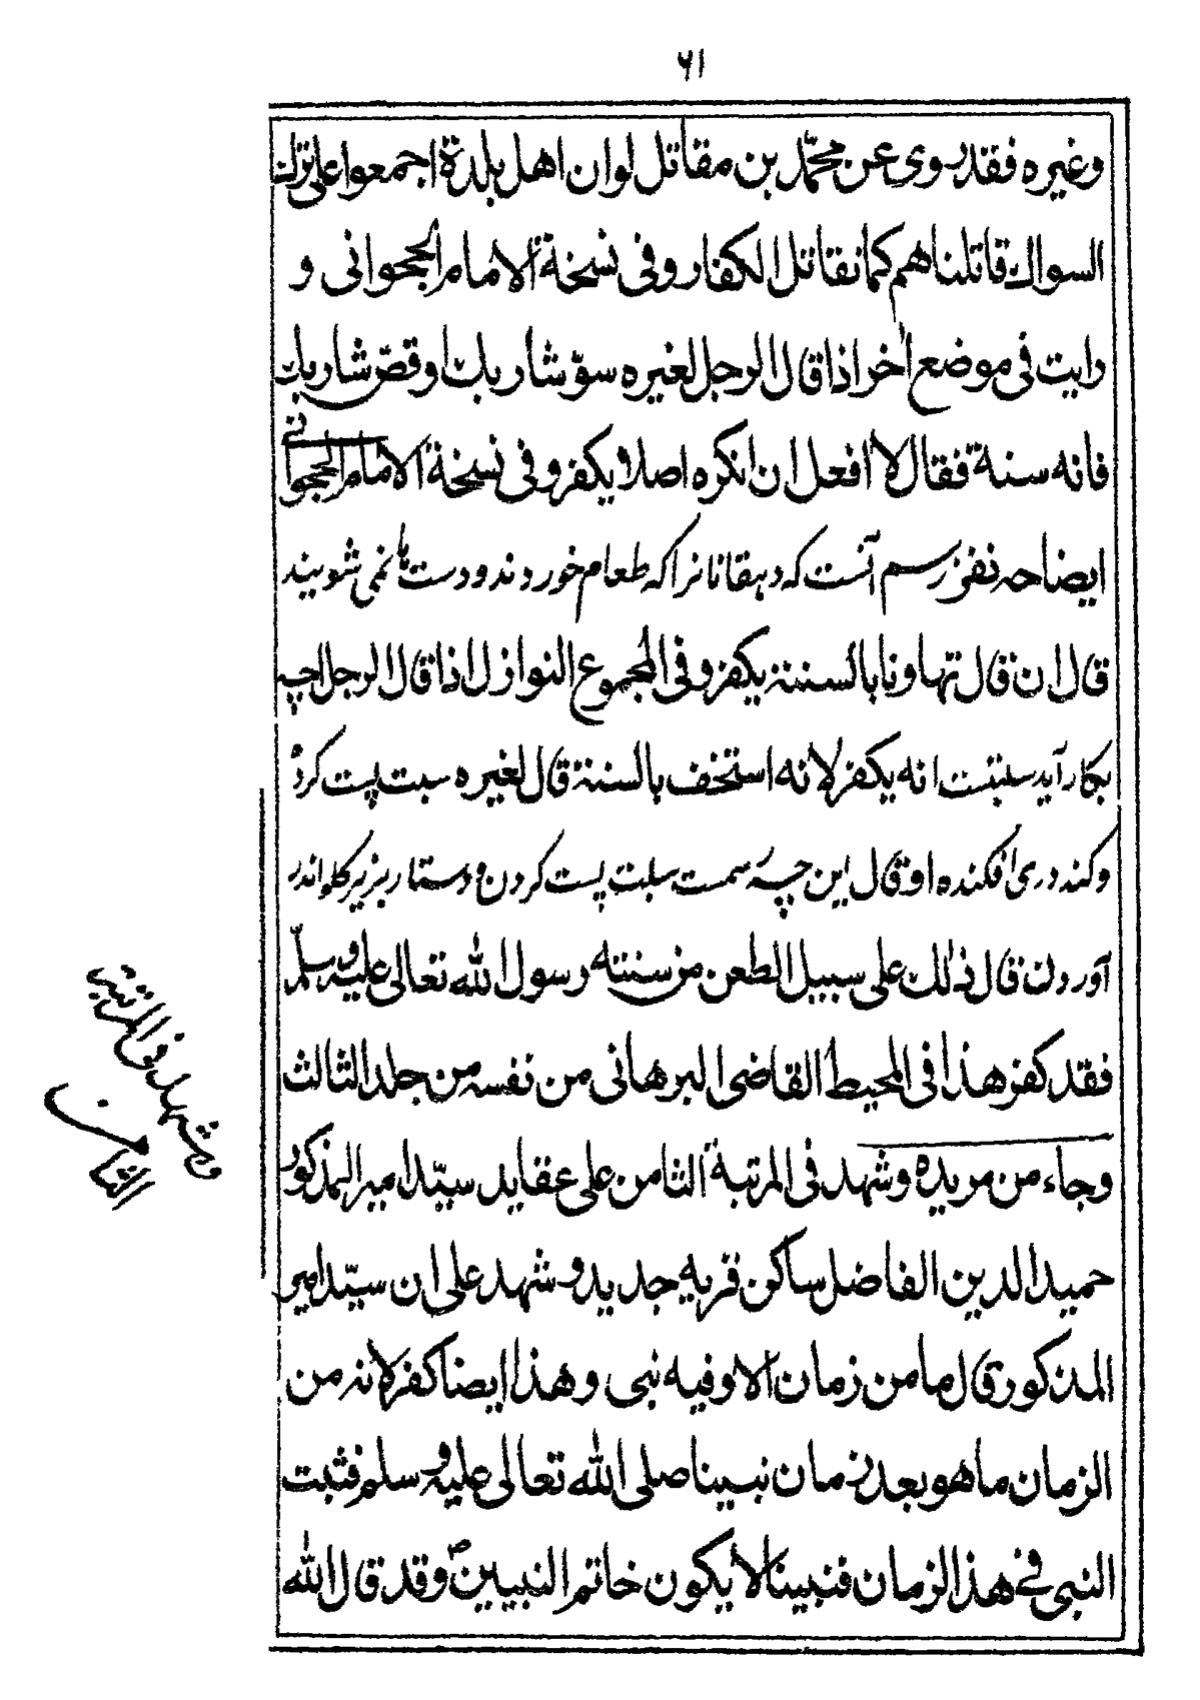 ۶۱
وغیره فقد روی عن محمّد بن مقاتل لوان اهل بلدة اجمعوا علی ترك
السواك قاتلناهم كما نقاتل الكفار وفی نسخة الامام الججوانی و
رایت فی موضع اٰخر اذا قال الرجل لغیره سوّ شاربك او قصّ شاربك
فانه سنة فقال لا افعل ان انكره اصلا یكفر وفی نسخة الامام الججوانے
ایضا چه نفز رسم آنست كه دهقانانرا كه طعام خوردند و دستها نمی شویند
قال ان قال تهاونا بالسنتة یكفر وفی المجموع النوازل اذا قال الرجل اچه
بكار آید سبنتست انه یكفر لانه استخف بالسنتة قال لغیره سبت پست كردهٔ
وكنددری افكنده او قال این چه سمت سبلت پست كردن و دستار بزیر گلو اندر
آوردن قال ذلك علی سبیل الطعن من سنته رسول الله تعالی علیه وسلّم
فقد كفر هذا فی المحیط القاضی البرهانی من نفسه من جلد الثالث
وجاء من مریده وشهد فی المرتبة الثامن علی عقاید سیّد امیر المذكور
حمید الدین الفاضل ساكن قریه جدید و شهد علی ان سیّد امیر
المذكور قال ما من زمان الا وفیه نبی وهذا ایضا كفر لانه من
الزمان ما هو بعد زمان نبینا صلی الله تعالی علیه و سلم فثبت
النبی فے هذا الزمان فنبینا لا یكون خاتم النبیین ؐ وقد قال الله
وشهد فی المرتبة
الثامن